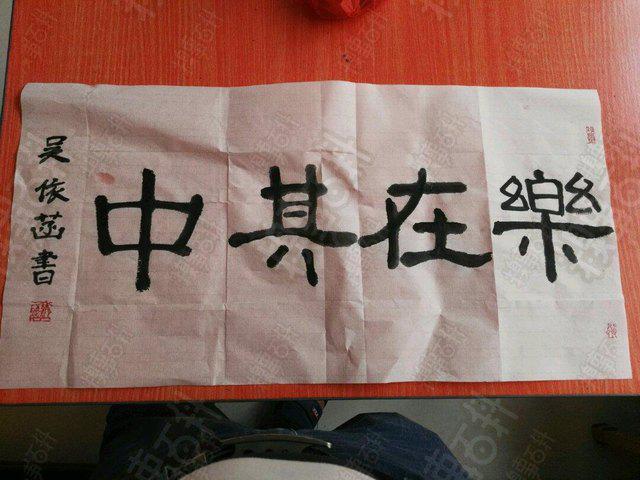 樂在其中
吴依菡書